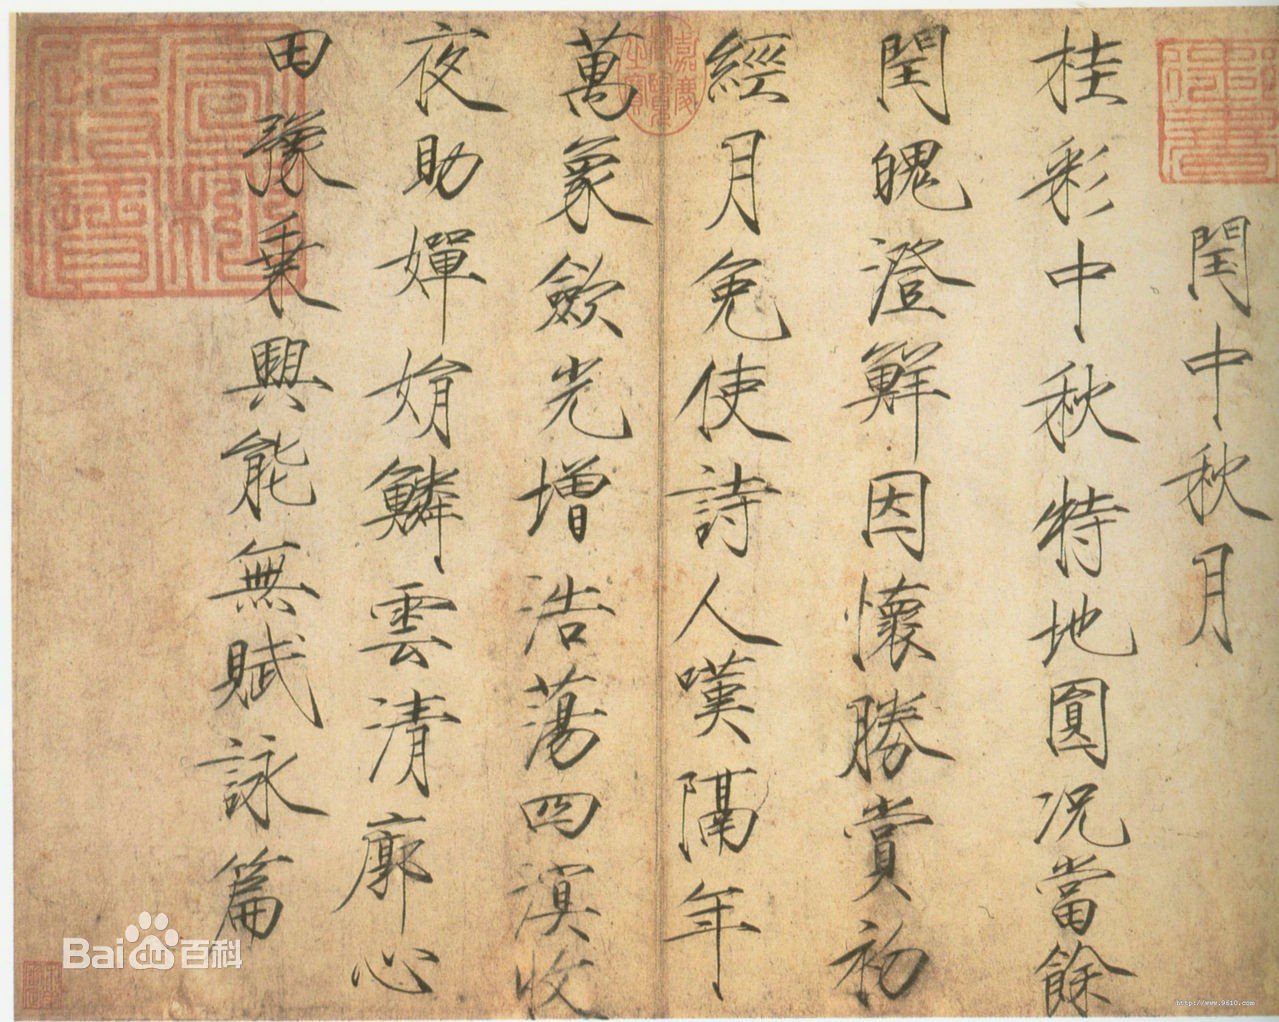 閏中秋月
桂彩中秋特地圓况當餘
閏魄澄鮮因懷勝賞初
經月免使詩人嘆隔年
萬象歛光增浩蕩四溟收
夜助嬋娟鱗雲清廓心
田豫乗興能無賦詠篇
嘉慶御覽之寶
Bai百科
http://www.9610.com